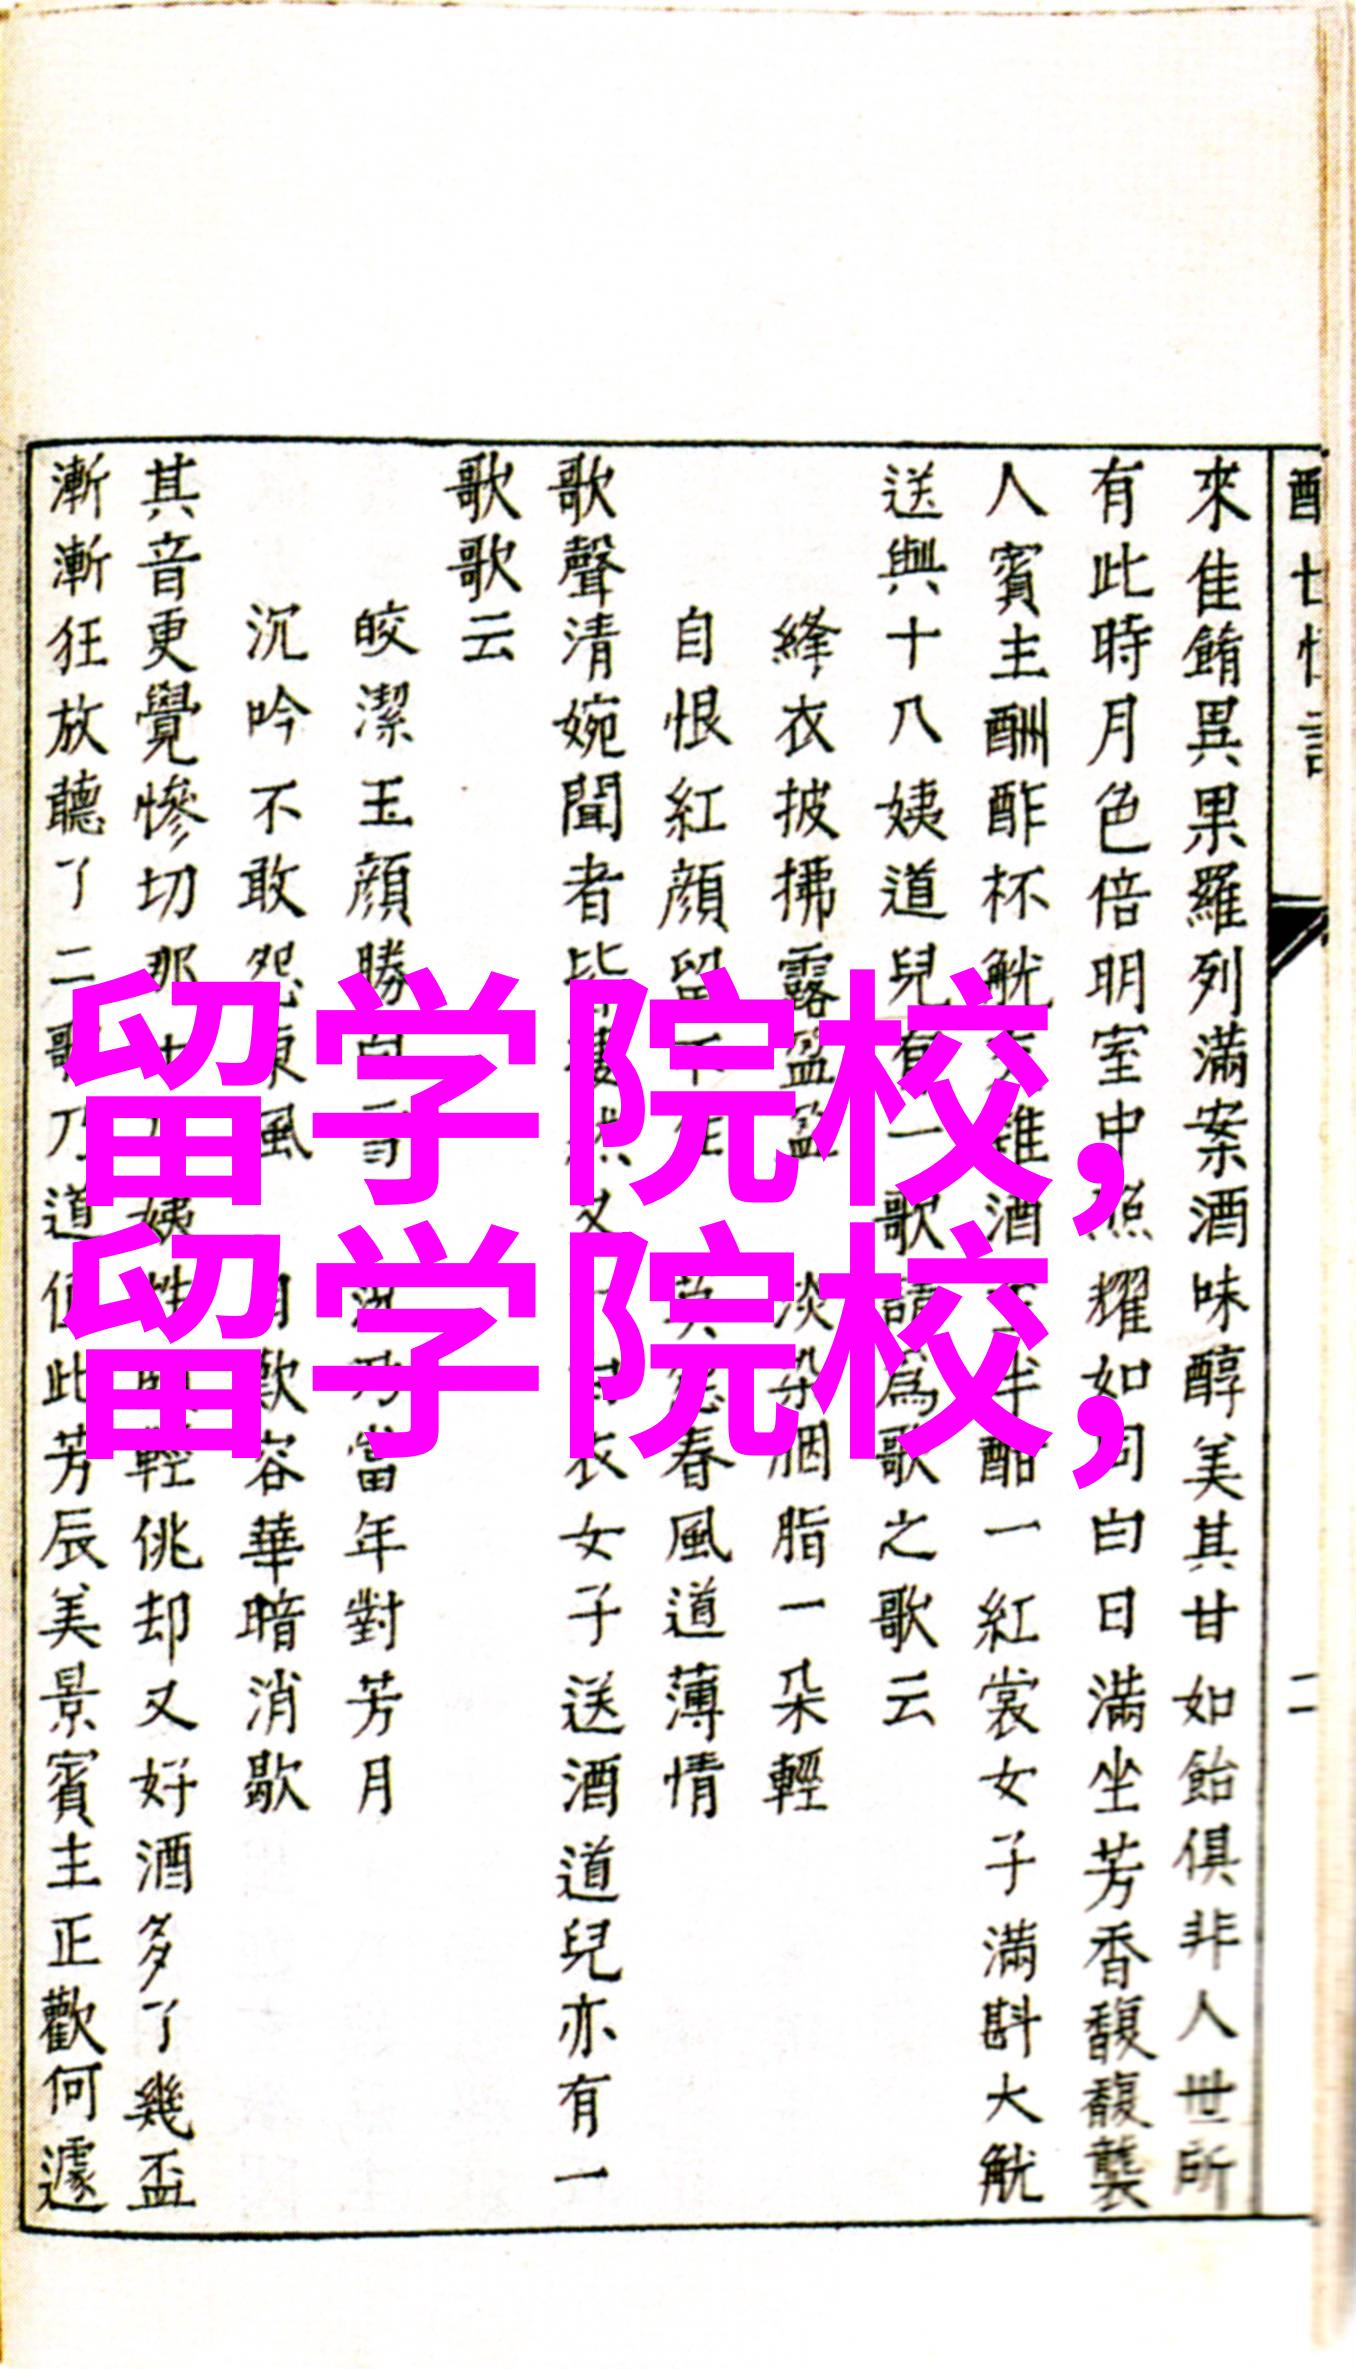 來佳餚異果羅列滿案酒味醇美其甘如飴俱非人世所
有此時月色倍明室中照耀如同白日滿坐芳香馥馥襲
人賓主酬酢杯觥交雜酒至半酣一紅裳女子滿斟大觥
送與十八姨道兒有一歌請爲歌之歌云
絳衣披拂露盈盈 淡染胭脂一朵輕
自恨紅顔留不住 莫怨春風道薄情
歌聲清婉聞者皆淒然又 衣女子送酒道兒亦有一
歌歌云
皎潔玉顔勝白雪 況乃當年對芳月
沉吟不敢怨東風 自歎容華暗消歇
其音更覺慘切那 姨性 輕佻却又好酒多了幾盃
漸漸狂放聽了二歌乃道 此芳辰美景賓主正歡何遽
二
留学院校,
留学院校,